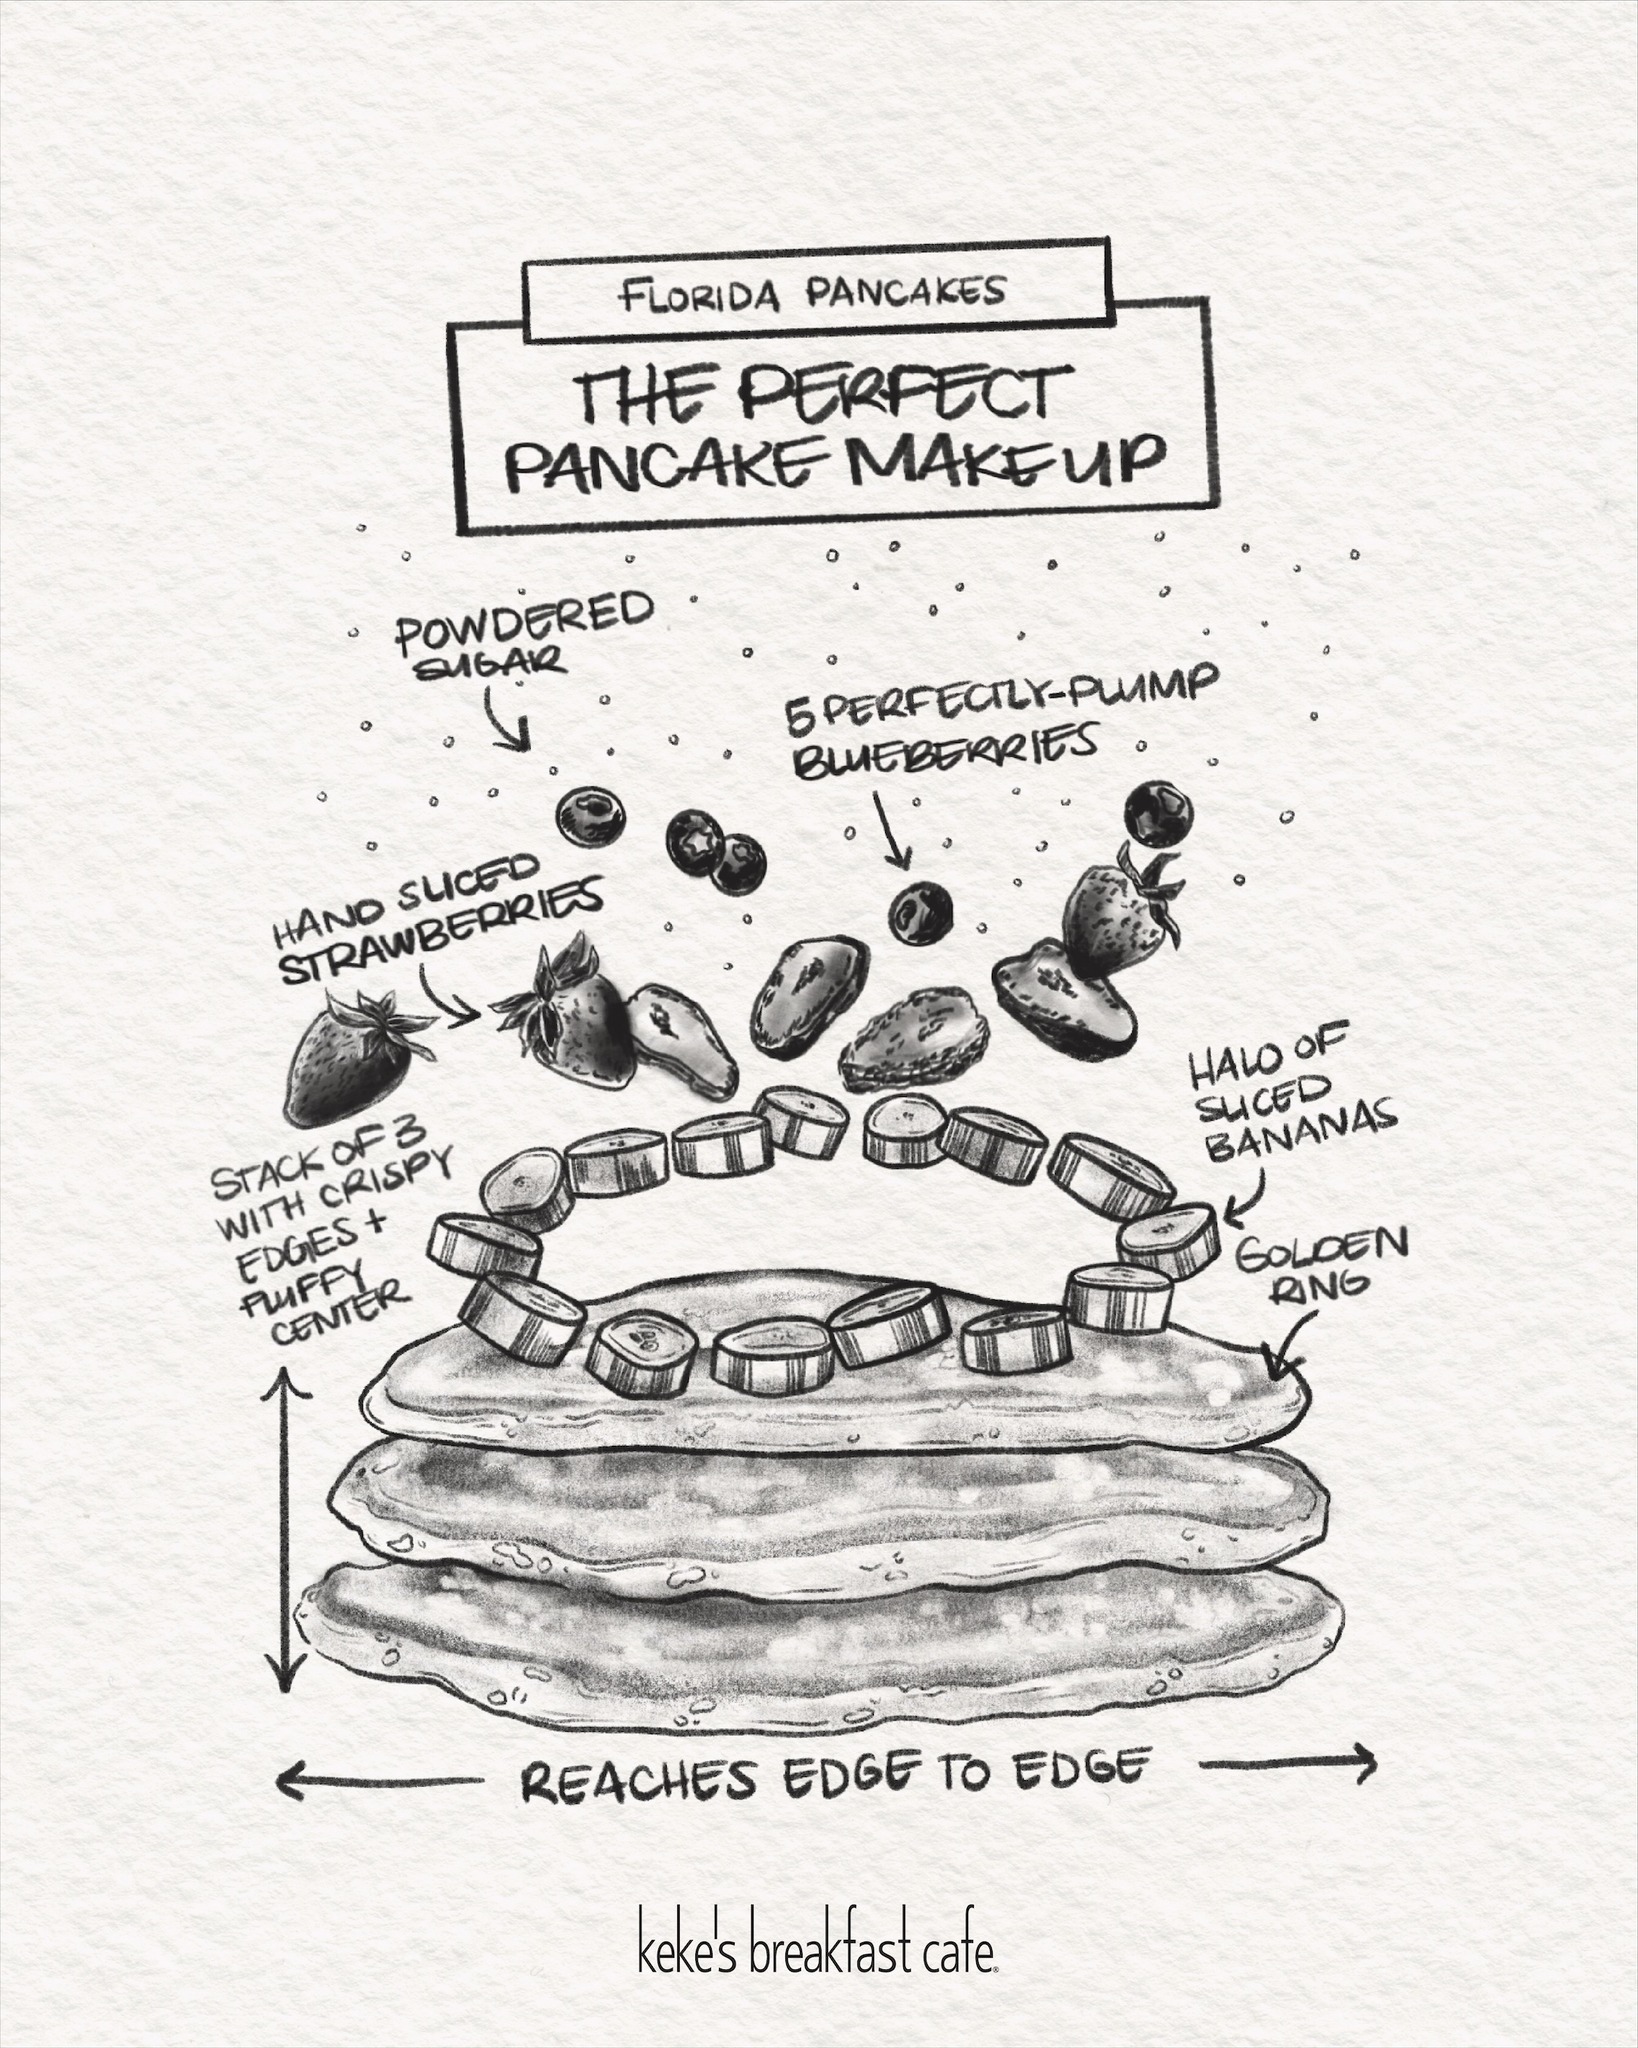 FLORIDA PANCAKES
THE PERFECT
PANCAKE MAKEUP
POWDERED
SUGAR
5 PERFECTLY-PLUMP
BLUEBERRIES
HAND SLICED
STRAWBERRIES
HALO OF
SLICED
BANANAS
STACK OF 3
WITH CRISPY
EDGES +
FLUFFY
CENTER
GOLDEN
RING
REACHES EDGE TO EDGE
keke's breakfast cafe®